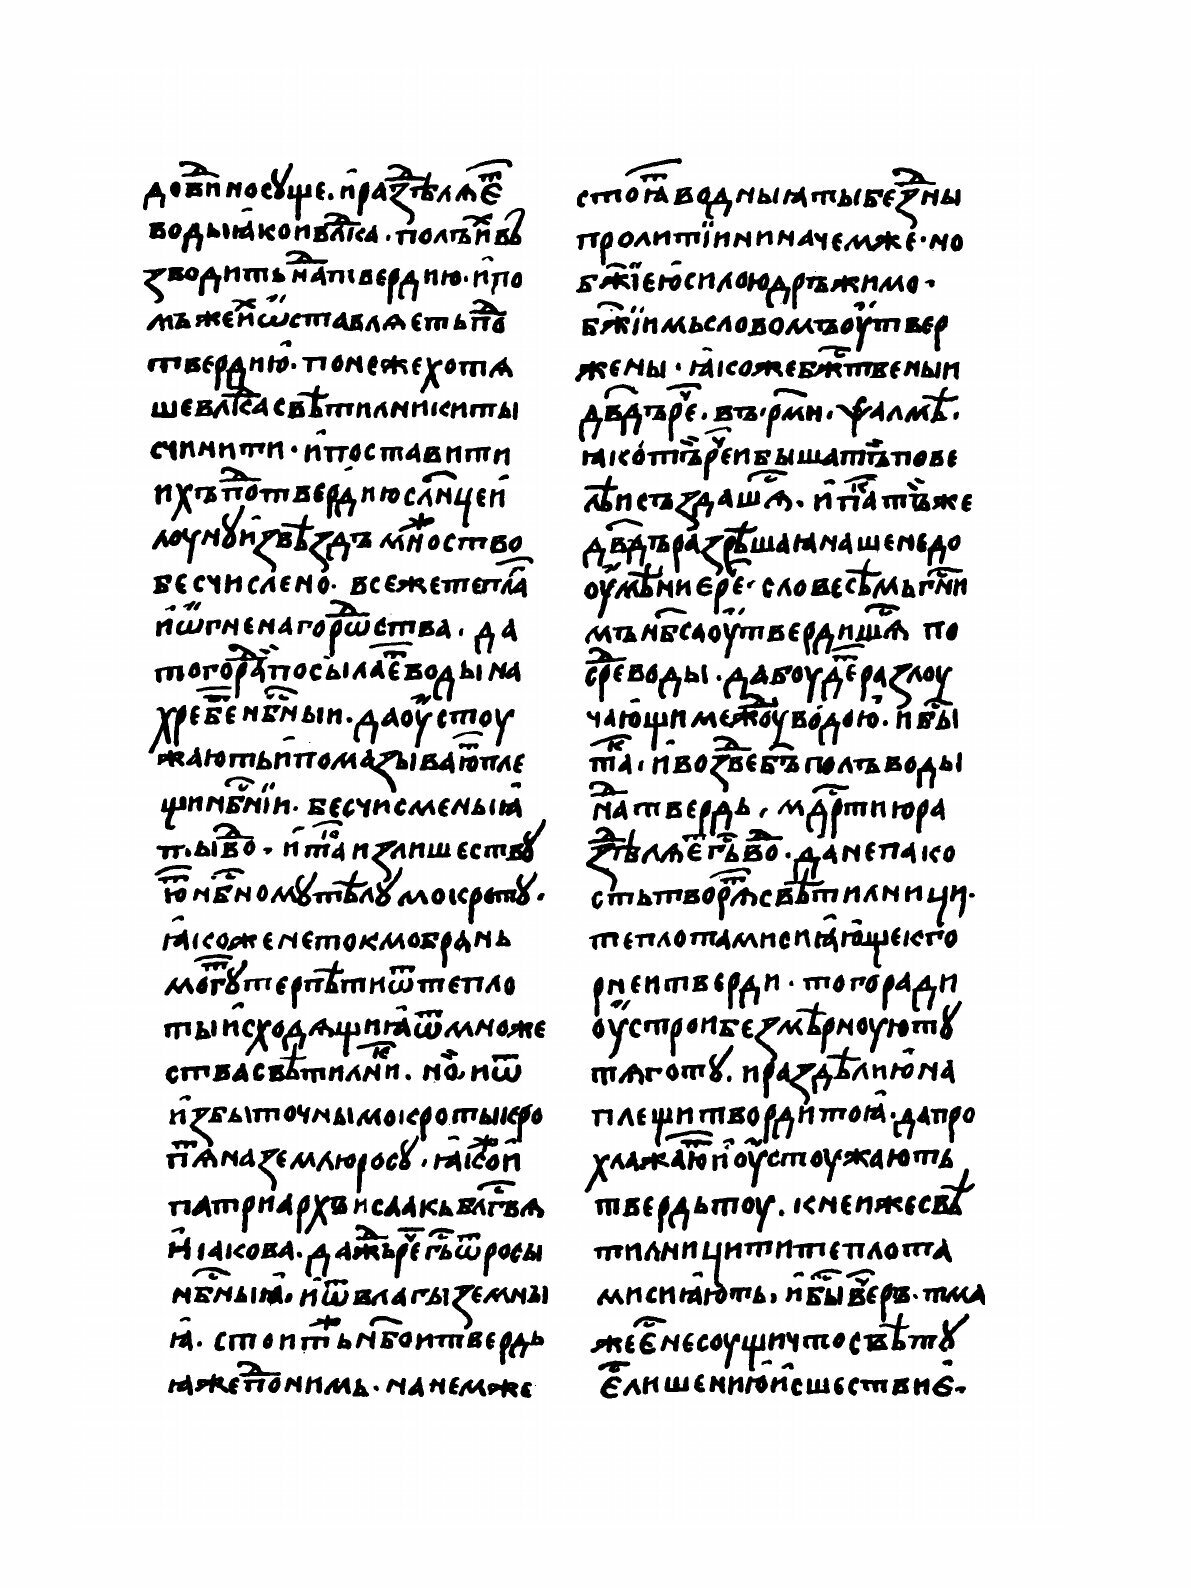 доⷣбиносꙋще. и҆раⷣзъ́лѧѥⷮ
водыꙗ҆коивлⷣка. полъи҆хⷤвь
зводитьнаⷣтвердию. и҆по
мъжеи҆ⷯѿставлѧетьпоⷣ
твердию҆. понежехотѧ
шевлⷣкасвѣтилникиты
счинити. и҆поставити
ихъпоⷣтвердиюсл҃нцеи҆
лоунꙋи҆звѣздъмнⷤоство
бесчислено. всежетеплаⷭ҇
и҆ѿгненагороⷣѿства. да
тогораⷣпосылаеⷮводына
хребеⷮнбⷭ҇ныи. даоу҆стоу
жаютьи҆помазываюⷮпле
щинбⷭ҇нїи. бесчисменыꙗ҆
тꙑвоⷣ. и҆таⷦизлишествꙋ
юⷮнбⷭ҇номꙋтѣлꙋмокротꙋ.
ꙗ҆коженетокмобрань
могꙋⷮтерпѣтиѿтепло
тыи҆сходѧщиꙗ҆ѿмноже
ствасвѣтилниⷦ. но҆иѿ
и҆збыточнымокротыкро
пѧⷮназемлюросꙋ. ꙗ҆коⷤи҆
патриархъисаакьблгⷭ҇вѧ
и҆ꙗкова. даⷤжьреⷱ҇гь҃ѿросы
нбⷭ҇ныꙗ҆. и҆ѿвлагыземны
ꙗ҆. стоитьⷤнб҃оитвердь
ꙗжепоⷣнимь. нанемже
стоꙗⷮводныꙗтыбеⷣзны
пролитїининачемже. но
бж҃їею҆силоюдръжимо.
бж҃їимьсловомъоу҆твер
жены. ꙗ҆кожебжⷭ҇твеныи
дв҃дъреⷱ҇. въ.рм҃и. ѱалмѣ.
ꙗкотъиⷨреⷱ҇ибышатъⷨпове
лѣисъздашⷭ҇ѧ. и҆паⷦтъиже
дв҃дъразрѣшаꙗнашенедо
оу҆мѣниереⷱ҇. словесѣмьгⷭ҇ни
мънб҃саоу҆твердишⷭ҇ѧ по
среⷣводы. дабоудеⷮразлоу
чаю҆щимежⷣоуводою҆. ибⷭ҇ы
таⷦ. и҆возⷣвебгъ҃полъводы
наⷣтвердь, мдⷭ҇ртиюра
зⷣъ́лѧѥⷮгь҃воⷣ. данепако
стьтворѧⷮсвѣтилници.
теплотамисиꙗ҆ю҆щекго҃
рнеитверди. тогоради
оу҆строибезмѣрноуютꙋ
тѧготꙋ. ираздѣлию҆на
плещитвордитоꙗ҆. дапро
хлажаюⷮи҆оу҆стоужають
твердьтоу. кнеижесвѣ
тилницититеплота
мисиꙗ҆ють, и҆бⷭ҇ывеⷱ҇ръ. тма
жеѥⷭ҇несоущичтосвѣтꙋ
ѥⷭ҇лишению҆и҆сшествиѥ҆.